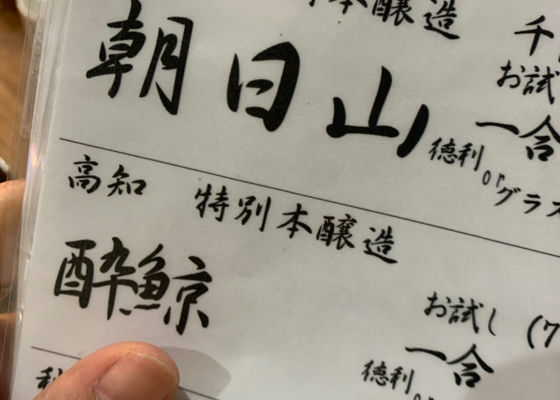 本醸造
朝日山
お試
一合
徳利
or
グラス
高知 特別本醸造
酔鯨
お試し (7
一合
徳利